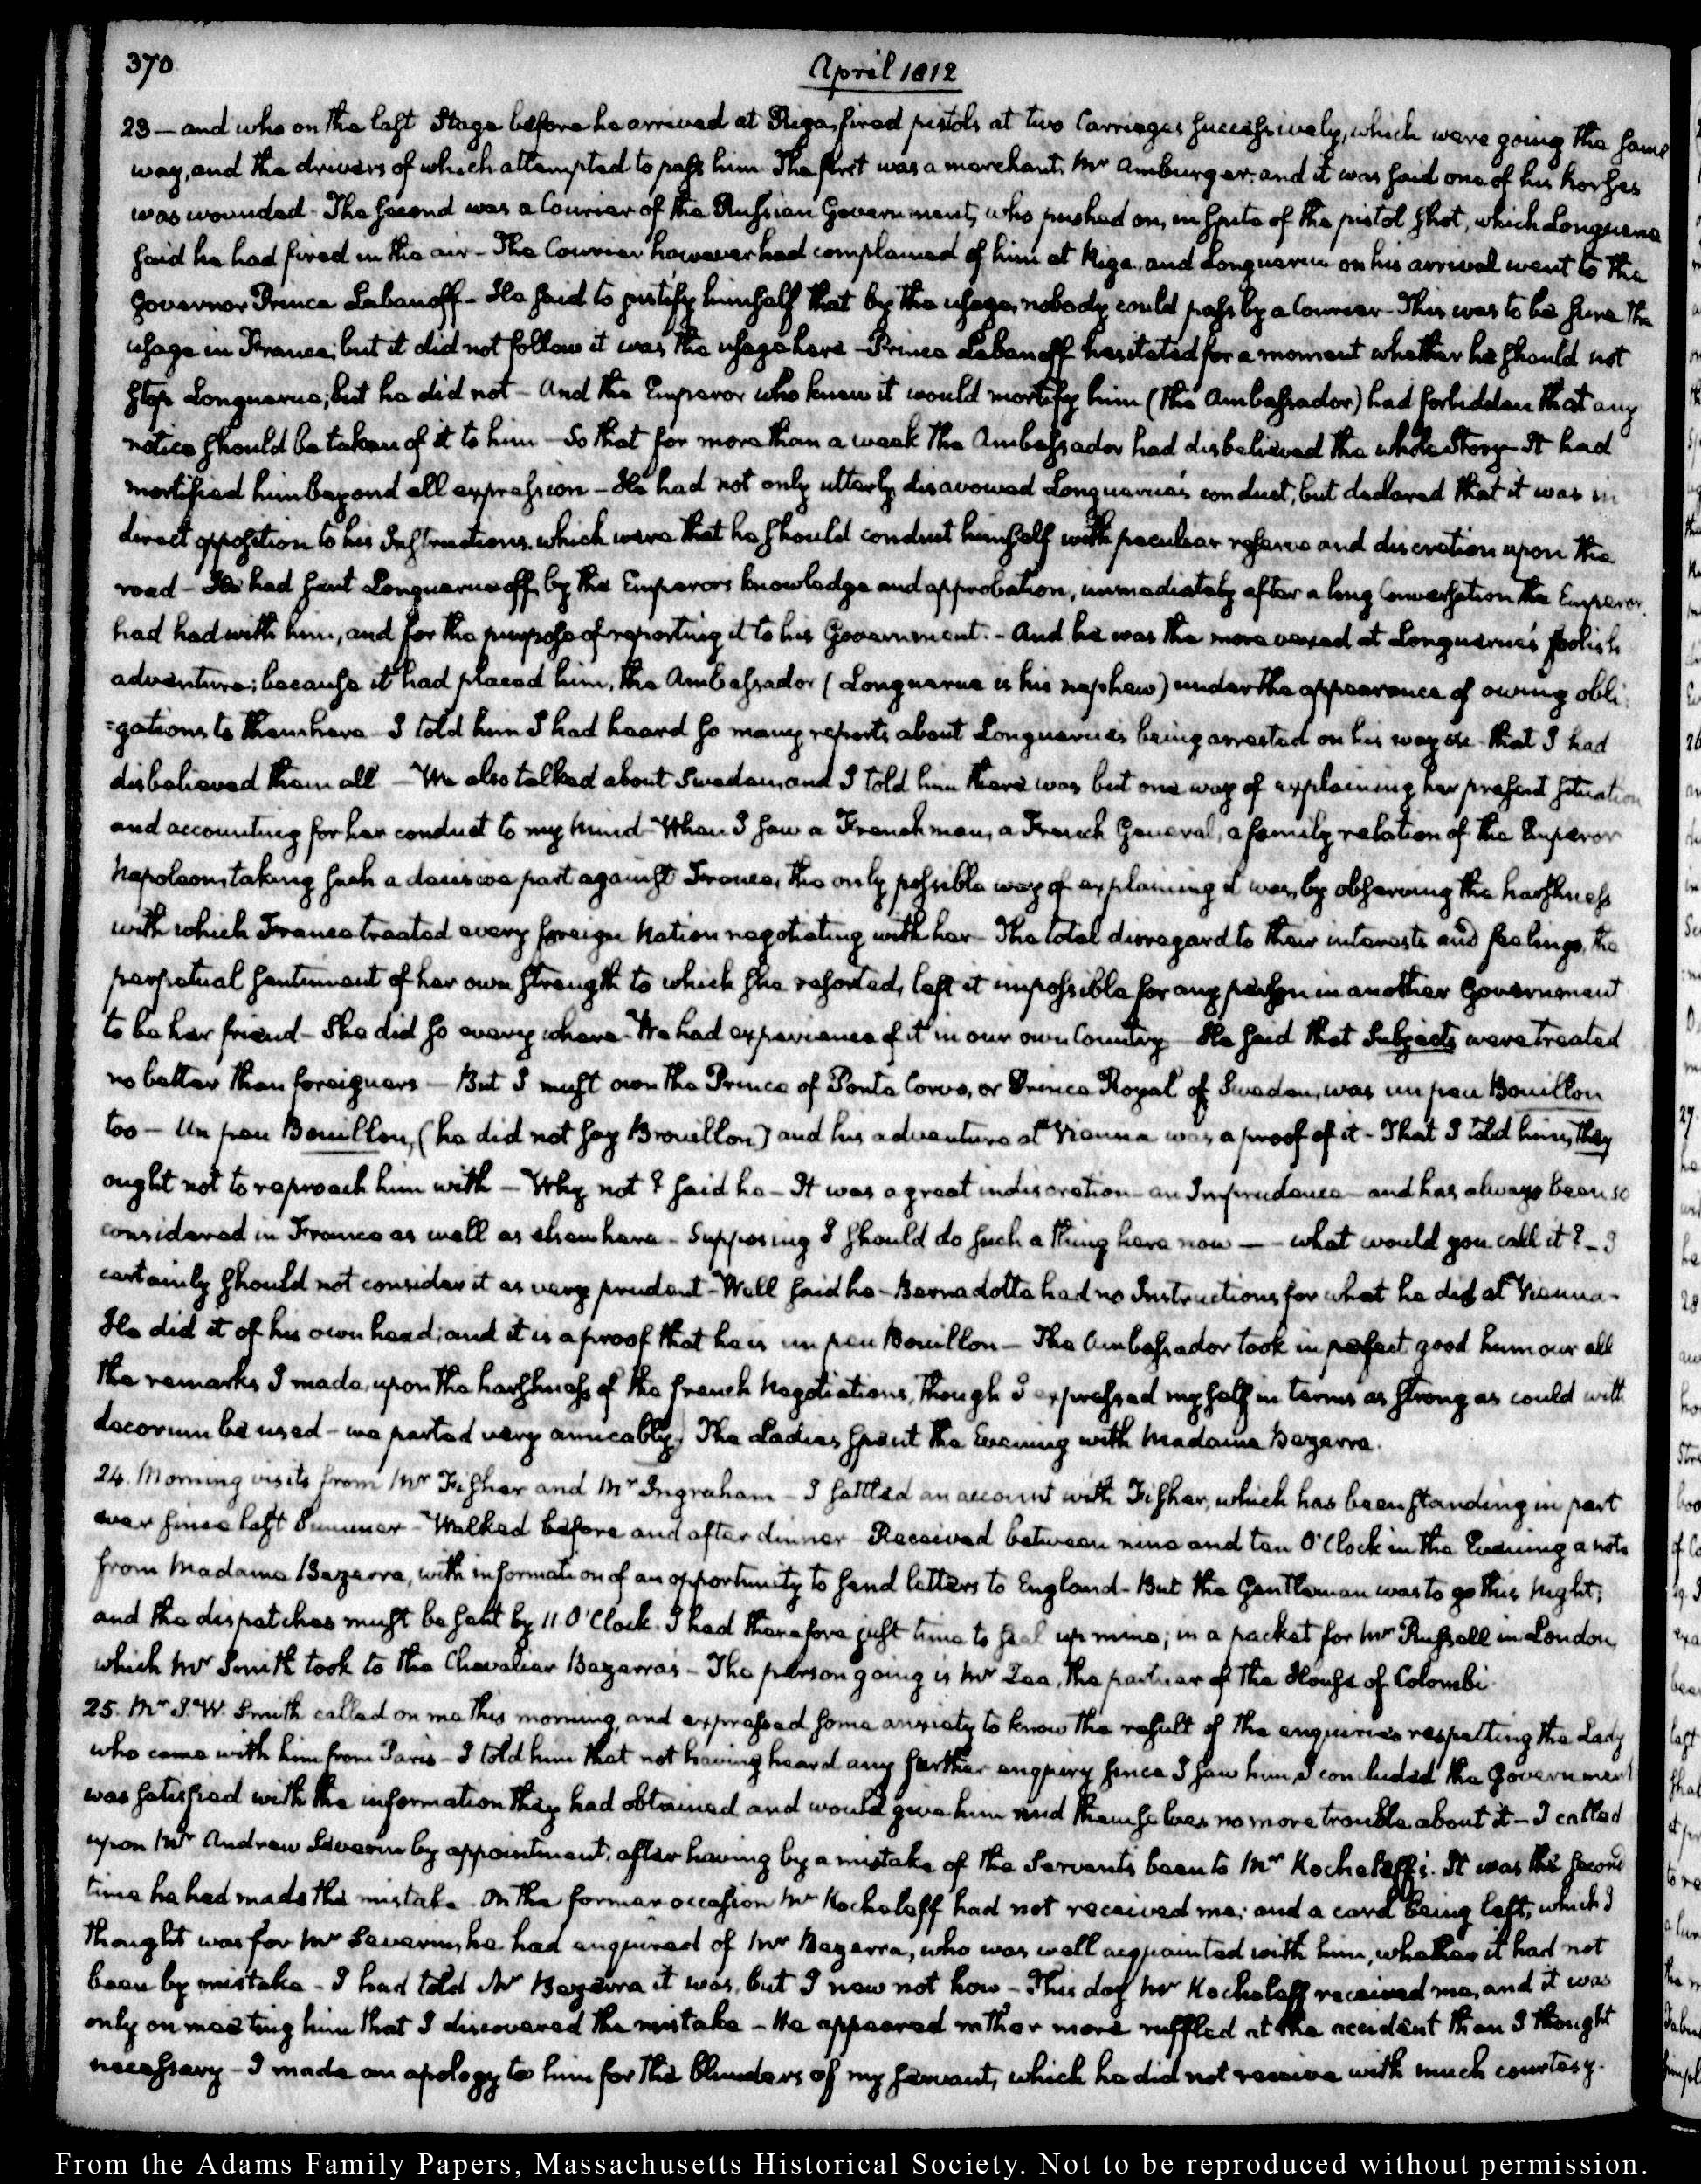 370
April 1812
23 — and who on the last Stage before he arrived at Riga, fired pistols at two Carriages successively, which were going the same
way, and the drivers of which attempted to pass him. The first was a merchant, Mr Amburger, and it was said one of his horses
was wounded - The second was a Courier of the Russian Government, who pushed on, in spite of the pistol shot, which Longuerue
said he had fired in the air - The Courier however had complained of him at Riga, and Longuerue on his arrival went to the
Governor Prince Labanoff - He said to justify himself that by the usage, nobody could pass by a Courier - This was to be sure the
usage in France; but it did not follow it was the usage here - Prince Labanoff hesitated for a moment whether he should not
stop Longuerue; but he did not - And the Emperor who knew it would mortify him (the Ambassador) had forbidden that any
notice should be taken of it to him - So that for more than a week the Ambassador had disbelieved the whole Story - It had
mortified him beyond all expression - He had not only utterly disavowed Longuerue's conduct, but declared that it was in
direct opposition to his Instructions, which were that he should conduct himself with peculiar reserve and discretion upon the
road - He had sent Longuerue off, by the Emperors knowledge and approbation, immediately after a long Conversation the Emperor
had had with him, and for the purpose of reporting it to his Government. - And he was the more vexed at Longuerue's foolish
adventure; because it had placed him, the Ambassador (Longuerue is his nephew) under the appearance of owing obli
=gations to them here - I told him I had heard so many reports about Longuerue's being arrested on his way &c - that I had
disbelieved them all - We also talked about Sweden, and I told him there was but one way of explaining her present situation
and accounting for her conduct to my mind - When I saw a Frenchman, a French General, a family relation of the Emperor
Napoleon, taking such a decisive part against France, the only possible way of explaining it was, by observing the harshness
with which France treated every foreign Nation negotiating with her - The total disregard to their interests and feelings, the
perpetual sentiment of her own strength to which she resorted, left it impossible for any person in another Government
to be her friend - She did so every where - We had experience of it in our own Country - He said that Subjects were treated
no better than foreigners - But I must own the Prince of Ponte Corvo, or Prince Royal of Sweden, was un peu Bouillon
too - Un peu Bouillon, (he did not say Brouillon) and his adventure at Vienna was a proof of it - That I told him, they
ought not to reproach him with - Why not? said he - It was a great indiscretion - an Imprudence - and has always been so
considered in France as well as elsewhere - Supposing I should do such a thing here now - - what would you call it? - I
certainly should not consider it as very prudent - Well said he - Bernadotte had no Instructions for what he did at Vienna -
He did it of his own head; and it is a proof that he is un peu Bouillon - The Ambassador took in perfect good humour all
the remarks I made, upon the harshness of the french Negotiations, though I expressed myself in terms as strong as could with
decorum be used - we parted very amicably. The Ladies spent the Evening with Madame Bezerra.
24. Morning visits from Mr Fisher and Mr Ingraham - I settled an account with Fisher, which has been standing in part
ever since last Summer - Walked before and after dinner - Received between nine and ten O'Clock in the Evening a note
from Madame Bezerra, with information of an opportunity to send letters to England - But the Gentleman was to go this Night;
and the dispatches must be sent by 11. O'Clock. I had therefore just time to seal up mine; in a packet for Mr Russell in London,
which Mr Smith took to the Chevalier Bezerra's - The person going is Mr Zea, the partner of the House of Colombi.
25. Mr J. W. Smith called on me this morning, and expressed some anxiety to know the result of the enquiries respecting the Lady
who came with him from Paris - I told him that not having heard any further enquiry since I saw him, I concluded the Government
was satisfied with the information they had obtained and would give him and themselves no more trouble about it - I called
upon Mr Andrew Severin by appointment; after having by a mistake of the Servants been to Mr Kocheleff's. It was the second
time he had made this mistake. On the former occasion Mr Kocheleff had not received me; and a card being left, which I
thought was for Mr Severin, he had enquired of Mr Bezerra, who was well acquainted with him, whether it had not
been by mistake - I had told Mr Bezerra it was, but I new not how - This day Mr Kocheleff received me, and it was
only on meeting him that I discovered the mistake - He appeared rather more ruffled at the accident than I thought
necessary - I made an apology to him for the blunders of my servant, which he did not receive with much courtesy.
From the Adams Family Papers, Massachusetts Historical Society. Not to be reproduced without permission.